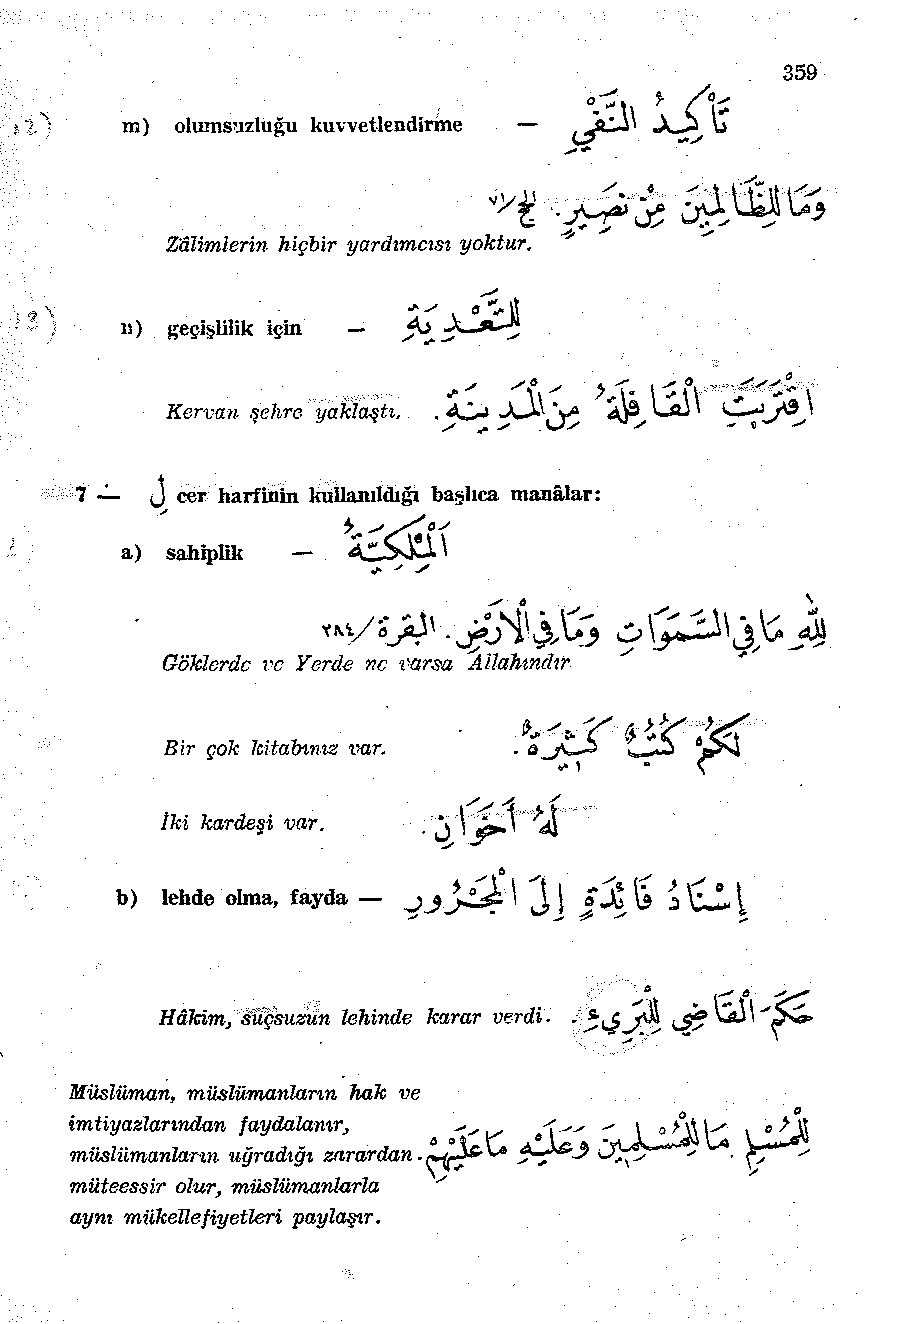 359
m) olumsuzluğu kuvvetlendirme — تَأْكِيدُ النَّفْيِ
وَمَا لِلظَّالِمِينَ مِنْ نَصِيرٍ. الحج/٧١
Zâlimlerin hiçbir yardımcısı yoktur.
n) geçişlilik için — لِلتَّعْدِيَةِ
Kervan şehre yaklaştı. اقْتَرَبَتِ الْقَافِلَةُ مِنَ الْمَدِينَةِ.
7 — لِ cer harfinin kullanıldığı başlıca manâlar:
a) sahiplik — اَلْمِلْكِيَّةُ
لِلّٰهِ مَا فِي السَّمَوَاتِ وَمَا فِي الْاَرْضِ. البقرة/٢٨٤
Göklerde ve Yerde ne varsa Allahındır
Bir çok kitabınız var. لَكُمْ كُتُبٌ كَثِيرَةٌ.
İki kardeşi var. لَهُ أَخَوَانِ.
b) lehde olma, fayda — إِسْنَادُ فَائِدَةٍ إِلَى الْمَجْرُورِ
Hâkim, suçsuzun lehinde karar verdi. حَكَمَ الْقَاضِي لِلْبَرِيءِ.
Müslüman, müslümanların hak ve
imtiyazlarından faydalanır,
müslümanların uğradığı zarardan لِلْمُسْلِمِ مَا لِلْمُسْلِمِينَ وَعَلَيْهِ مَا عَلَيْهِمْ.
müteessir olur, müslümanlarla
aynı mükellefiyetleri paylaşır.